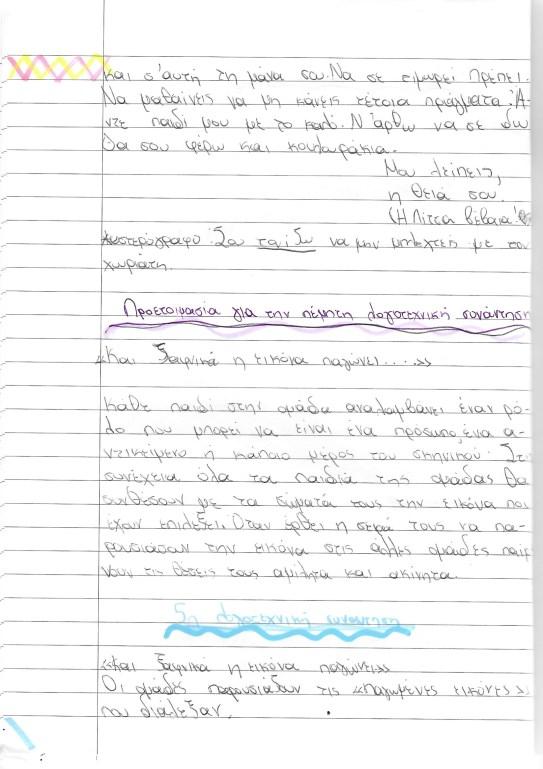 και σ'αυτή τη μάνα σου. Να σε τιμωρεί πρέπει.
Να μαθαίνεις να μη κάνεις τέτοια πράγματα. Ά-
ντε παιδί μου με το καλό. Ν'άρθω να σε δω
θα σου φέρω και κουλουράκια.
Μου λείπεις,
η θεία σου.
(Η Πίτσα βέβαια!
Υστερόγραφο: Σου το είπα να μην μπλέχτεις με τον
χωριάτη.
Προετοιμασία για την πέμπτη λογοτεχνική συνάντηση
«Και ξαφνικά η εικόνα παγώνει.....»
Κάθε παιδί στην ομάδα αναλαμβάνει έναν ρό-
λο που μπορεί να είναι ένα πρόσωπο, ένα α-
ντικείμενο ή κάποιο μέρος του σκηνικού. Στη
συνέχεια όλα τα παιδιά της ομάδας θα
συνθέσουν με τα σώματά τους την εικόνα που
έχουν επιλέξει. Όταν έρθει η σειρά τους να πα-
ρουσιάσουν την εικόνα στις άλλες ομάδες παίρ-
νουν τις θέσεις τους αμίλητα και ακίνητα.
5η λογοτεχνική συνάντηση
«Και ξαφνικά η εικόνα παγώνει»
Οι ομάδες παρουσιάζουν τις «παγωμένες εικόνες»
που διάλεξαν.